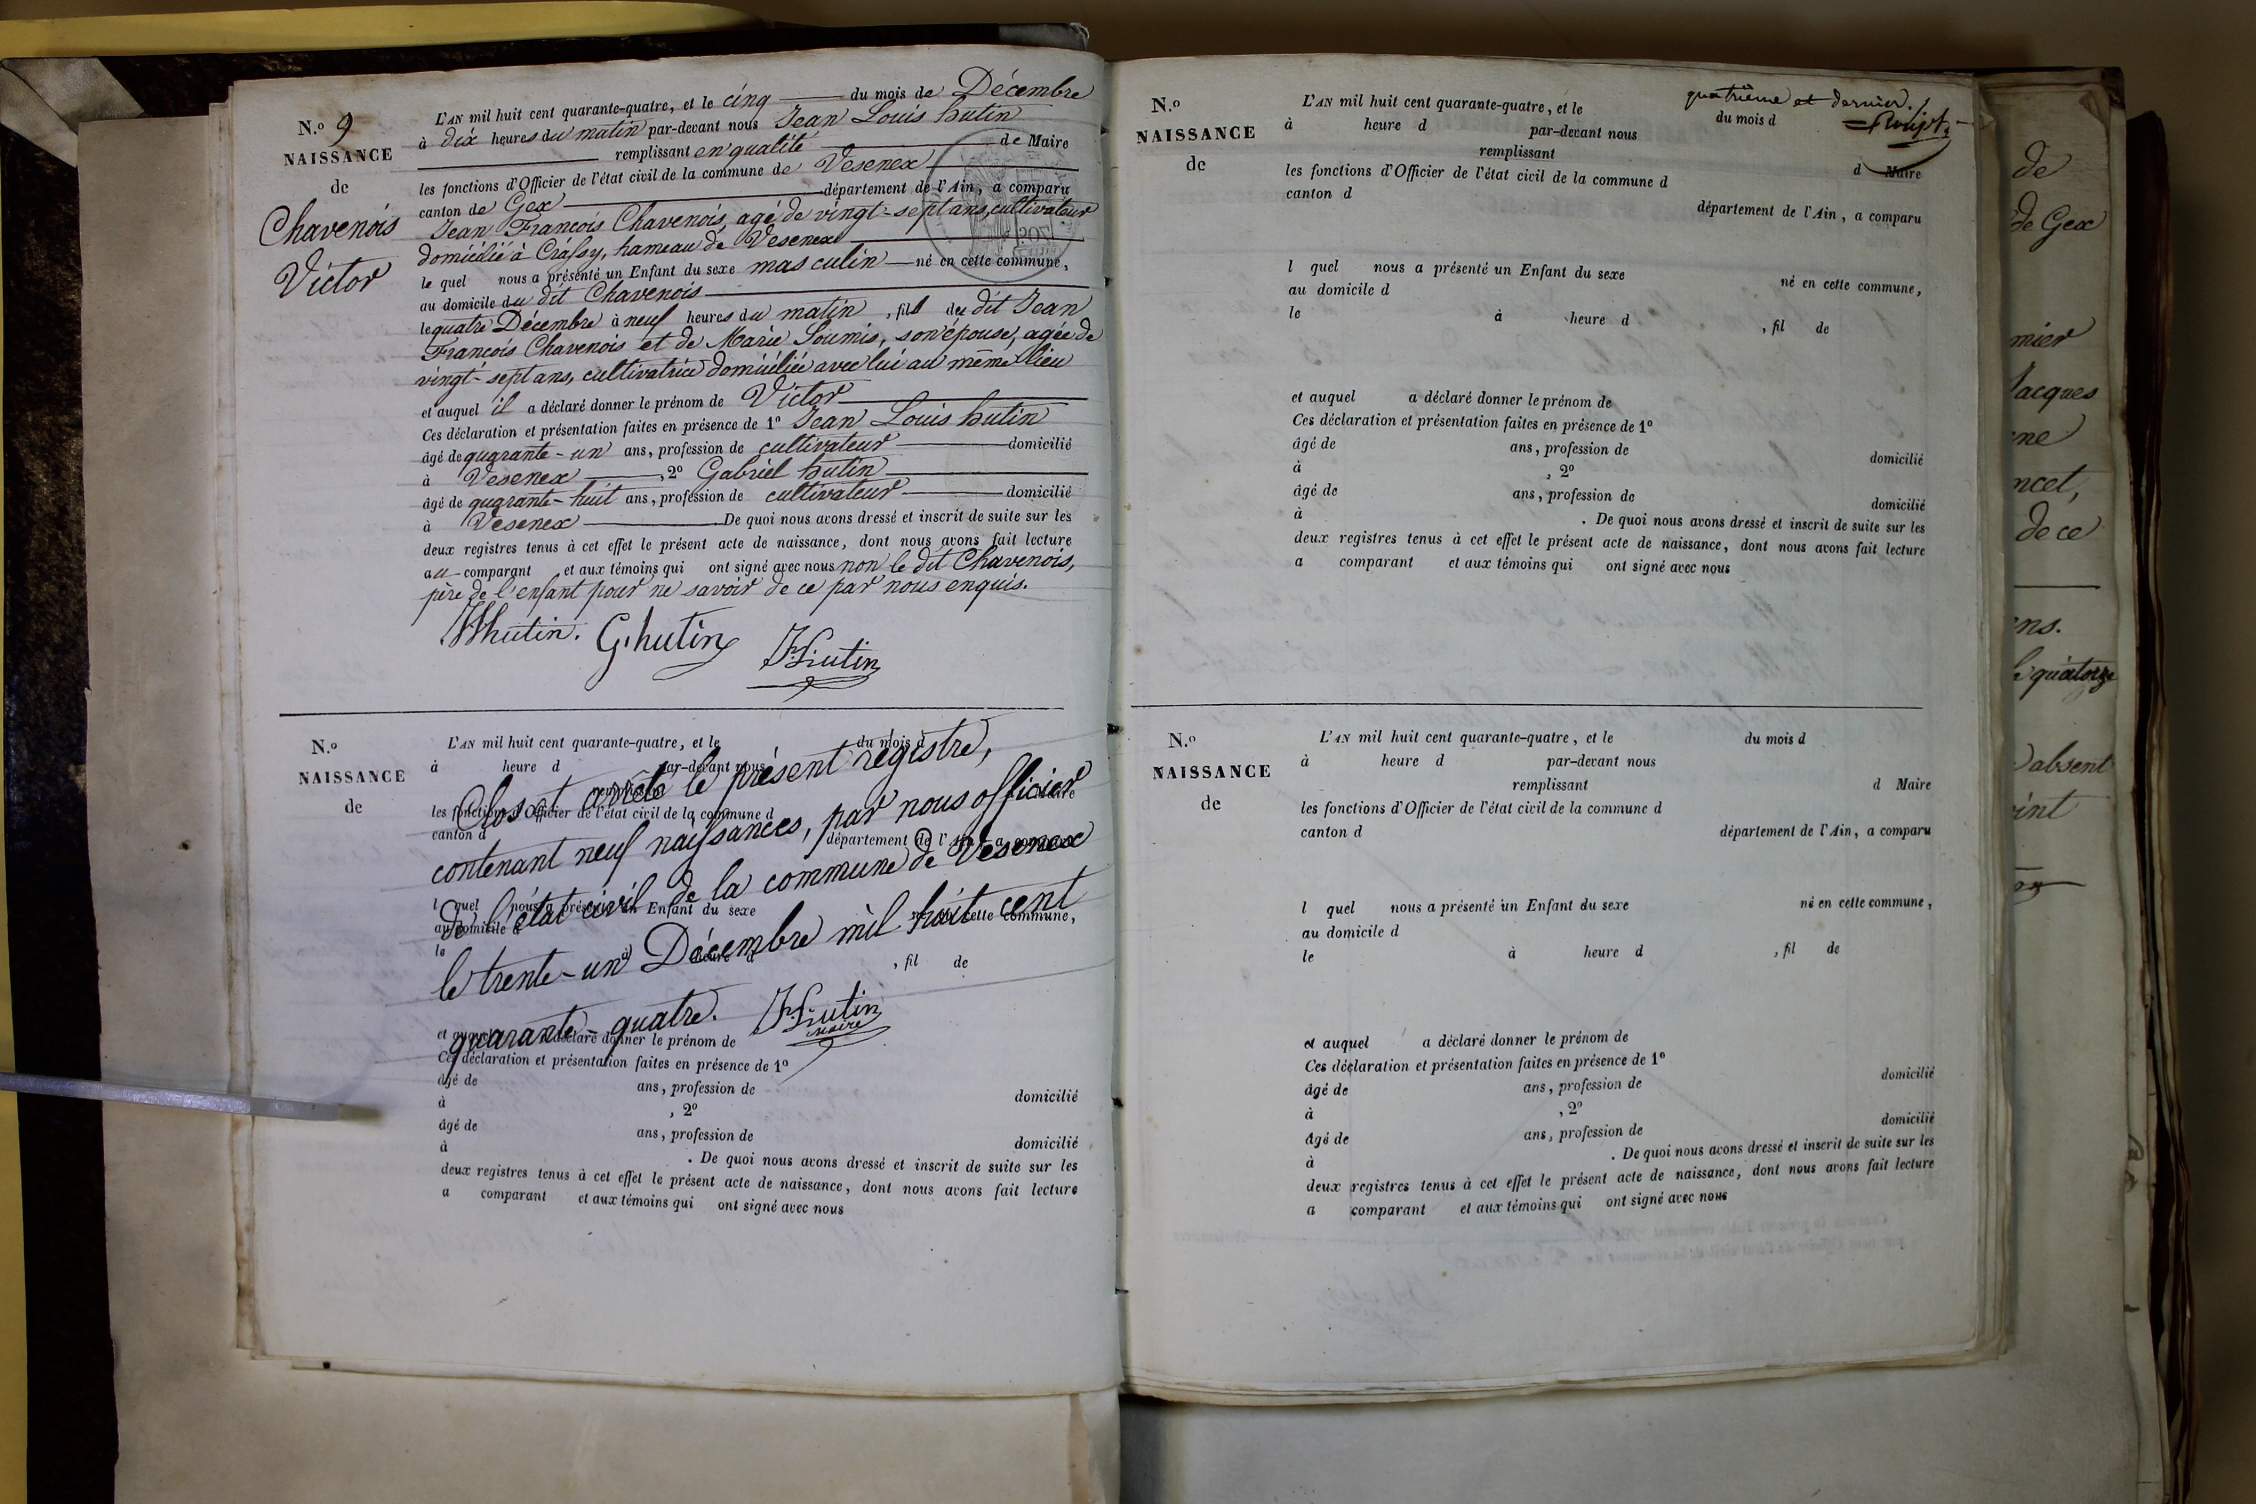 N.º 9
NAISSANCE
de
Chavenois
Victor
L'AN mil huit cent quarante-quatre, et le cinq du mois de Décembre
à dix heures du matin par-devant nous Jean Louis hutin
remplissant en qualité de Maire
les fonctions d'Officier de l'état civil de la commune de Vesenex
canton de Gex département de l'Ain, a comparu
Jean François Chavenois, agé de vingt-sept ans, cultivateur
domicilié à Crassy, hameau de Vesenex
le quel nous a présenté un Enfant du sexe masculin né en cette commune,
au domicile du dit Chavenois
le quatre Décembre à neuf heures du matin, fils du dit Jean
François Chavenois et de Marie Soumis, son épouse, agée de
vingt-sept ans, cultivatrice domiciliée avec lui au même lieu
et auquel il a déclaré donner le prénom de Victor
Ces déclaration et présentation faites en présence de 1º Jean Louis hutin
âgé de quarante-un ans, profession de cultivateur domicilié
à Vesenex, 2º Gabriel hutin
âgé de quarante-huit ans, profession de cultivateur domicilié
à Vesenex De quoi nous avons dressé et inscrit de suite sur les
deux registres tenus à cet effet le présent acte de naissance, dont nous avons fait lecture
au comparant et aux témoins qui ont signé avec nous non le dit Chavenois,
père de l'enfant pour ne savoir de ce par nous enquis.
hutin. G. hutin hutin
N.º
NAISSANCE
de
L'AN mil huit cent quarante-quatre, et le du mois d
à heure d par-devant nous
remplissant Maire
les fonctions d'Officier de l'état civil de la commune d
canton d département de l'Ain, a comparu
l quel nous a présenté un Enfant du sexe né en cette commune,
au domicile d
le heure d , fil de
Clos et arrêté le présent registre,
contenant neuf naissances, par nous officier
de l'état civil de la commune de Vesenex
le trente-un Décembre mil huit cent
quarante-quatre. hutin
maire
et auquel a déclaré donner le prénom de
Ces déclaration et présentation faites en présence de 1º
âgé de ans, profession de domicilié
à , 2º
âgé de ans, profession de domicilié
à . De quoi nous avons dressé et inscrit de suite sur les
deux registres tenus à cet effet le présent acte de naissance, dont nous avons fait lecture
a comparant et aux témoins qui ont signé avec nous
quatrième et dernier.
N.º
NAISSANCE
de
L'AN mil huit cent quarante-quatre, et le du mois d
à heure d par-devant nous
remplissant d Maire
les fonctions d'Officier de l'état civil de la commune d
canton d département de l'Ain, a comparu
l quel nous a présenté un Enfant du sexe né en cette commune,
au domicile d
le à heure d , fil de
et auquel a déclaré donner le prénom de
Ces déclaration et présentation faites en présence de 1º
âgé de ans, profession de domicilié
à , 2º
âgé de ans, profession de domicilié
à . De quoi nous avons dressé et inscrit de suite sur les
deux registres tenus à cet effet le présent acte de naissance, dont nous avons fait lecture
a comparant et aux témoins qui ont signé avec nous
N.º
NAISSANCE
de
L'AN mil huit cent quarante-quatre, et le du mois d
à heure d par-devant nous
remplissant d Maire
les fonctions d'Officier de l'état civil de la commune d
canton d département de l'Ain, a comparu
l quel nous a présenté un Enfant du sexe né en cette commune,
au domicile d
le à heure d , fil de
et auquel a déclaré donner le prénom de
Ces déclaration et présentation faites en présence de 1º
âgé de ans, profession de domicilié
à , 2º
âgé de ans, profession de domicilié
à . De quoi nous avons dressé et inscrit de suite sur les
deux registres tenus à cet effet le présent acte de naissance, dont nous avons fait lecture
a comparant et aux témoins qui ont signé avec nous
de
de Gex
mier
Jacques
ne
ncet,
de ce
ens.
quatorze
absent